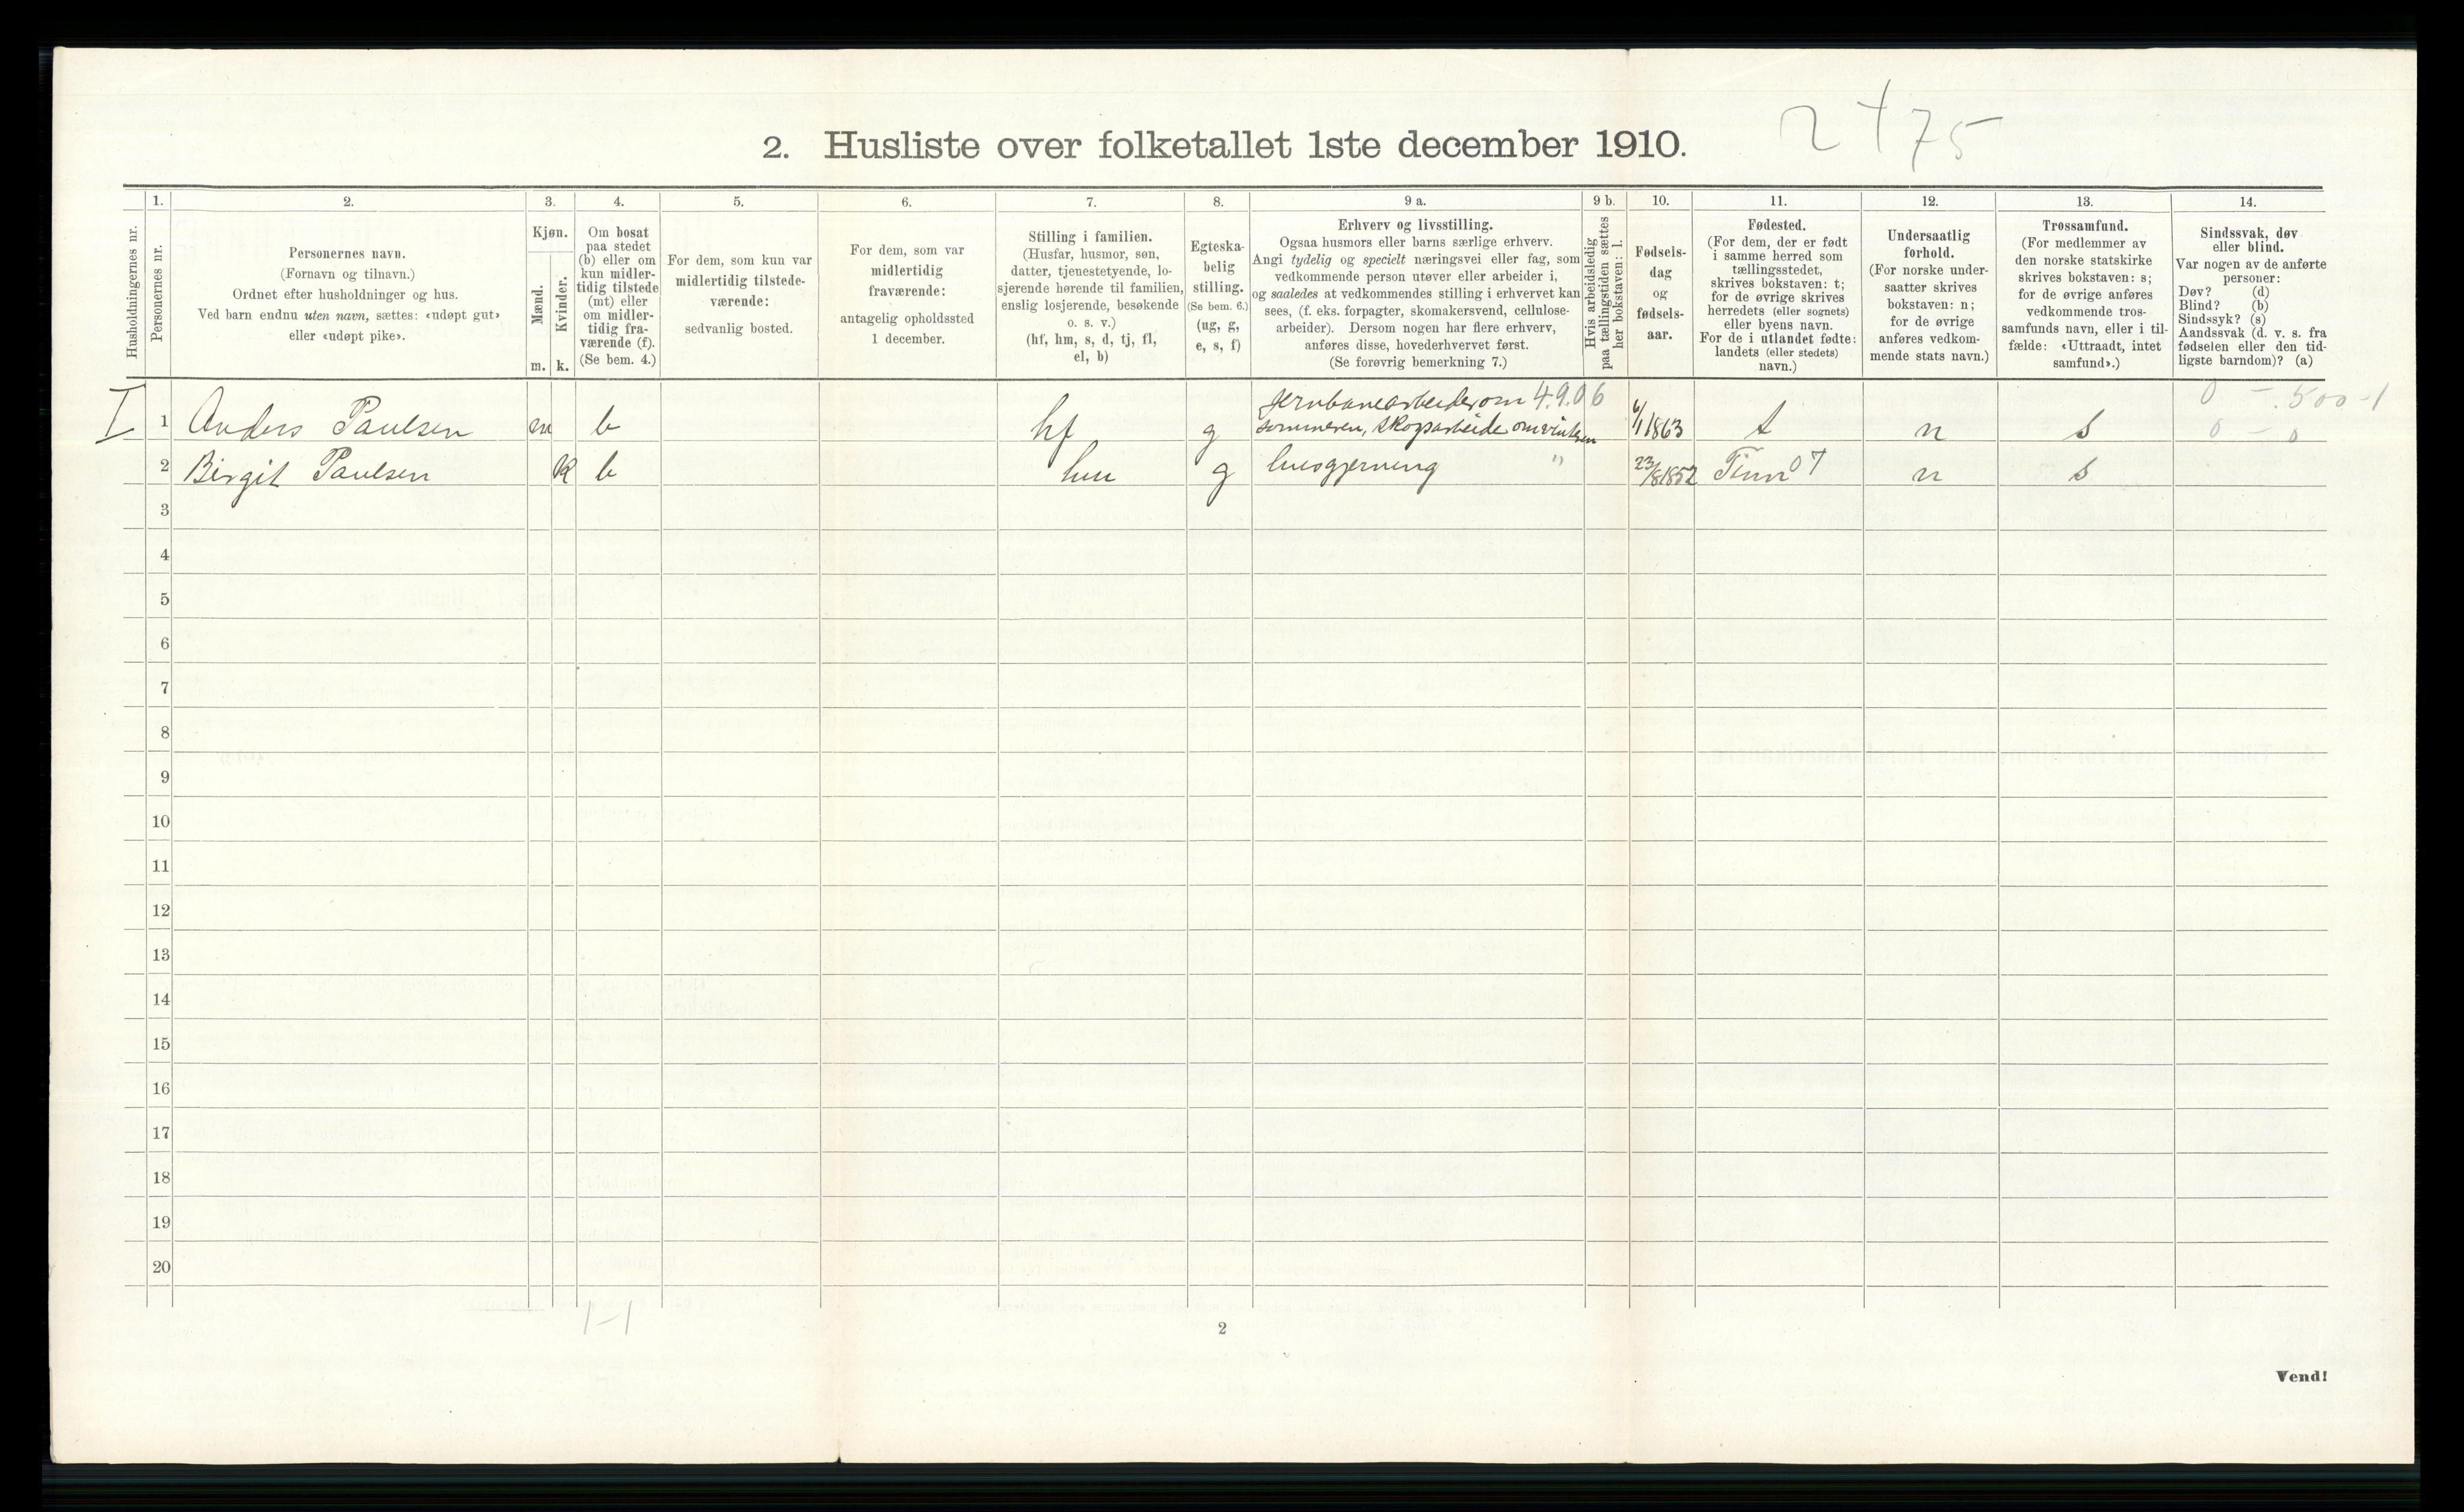 2475
2. Husliste over folketallet 1ste december 1910.
Husholdningernes nr.
1.
Personernes nr.
2.
Personernes navn.
(Fornavn og tilnavn.)
Ordnet efter husholdninger og hus.
Ved barn endnu uten navn, sættes: «udøpt gut»
eller «udøpt pike».
3.
Kjøn.
Mænd.
Kvinder.
m. k.
4.
Om bosat
paa stedet
(b) eller om
kun midler-
tidig tilstede
(mt) eller
om midler-
tidig fra-
værende (f).
(Se bem. 4.)
5.
For dem, som kun var
midlertidig tilstede-
værende:
sedvanlig bosted.
6.
For dem, som var
midlertidig
fraværende:
antagelig opholdssted
1 december.
7.
Stilling i familien.
(Husfar, husmor, søn,
datter, tjenestetyende, lo-
sjerende hørende til familien,
enslig losjerende, besøkende
o. s. v.)
(hf, hm, s, d, tj, fl,
el, b)
8.
Egteska-
belig
stilling.
(Se bem. 6.)
(ug, g,
e, s, f)
9 a.
Erhverv og livsstilling.
Ogsaa husmors eller barns særlige erhverv.
Angi tydelig og specielt næringsvei eller fag, som
vedkommende person utøver eller arbeider i,
og saaledes at vedkommendes stilling i erhvervet kan
sees, (f. eks. forpagter, skomakersvend, cellulose-
arbeider). Dersom nogen har flere erhverv,
anføres disse, hovederhvervet først.
(Se forøvrig bemerkning 7.)
9 b.
Hvis arbeidsledig
paa tællingstiden sættes
her bokstaven: l.
10.
Fødsels-
dag
og
fødsels-
aar.
11.
Fødested.
(For dem, der er født
i samme herred som
tællingsstedet,
skrives bokstaven: t;
for de øvrige skrives
herredets (eller sognets)
eller byens navn.
For de i utlandet fødte:
landets (eller stedets)
navn.)
12.
Undersaatlig
forhold.
(For norske under-
saatter skrives
bokstaven: n;
for de øvrige
anføres vedkom-
mende stats navn.)
13.
Trossamfund.
(For medlemmer av
den norske statskirke
skrives bokstaven: s;
for de øvrige anføres
vedkommende tros-
samfunds navn, eller i til-
fælde: «Uttraadt, intet
samfund».)
14.
Sindssvak, døv
eller blind.
Var nogen av de anførte
personer:
Døv? (d)
Blind? (b)
Sindssyk? (s)
Aandssvak (d. v. s. fra
fødselen eller den tid-
ligste barndom)? (a)
Jernbanearbeider om 4.9.06 0 - .500-1
I 1 Anders Paulsen m b hf g sommeren, skogsarbeide om vinteren 6/1 1863 t n s 0 - 0
2 Birgit Paulsen k b hm g husgjerning " 23/8 1852 Tinn 07 n s
3
4
5
6
7
8
9
10
11
12
13
14
15
16
17
18
19
20
1-1
2
Vend!